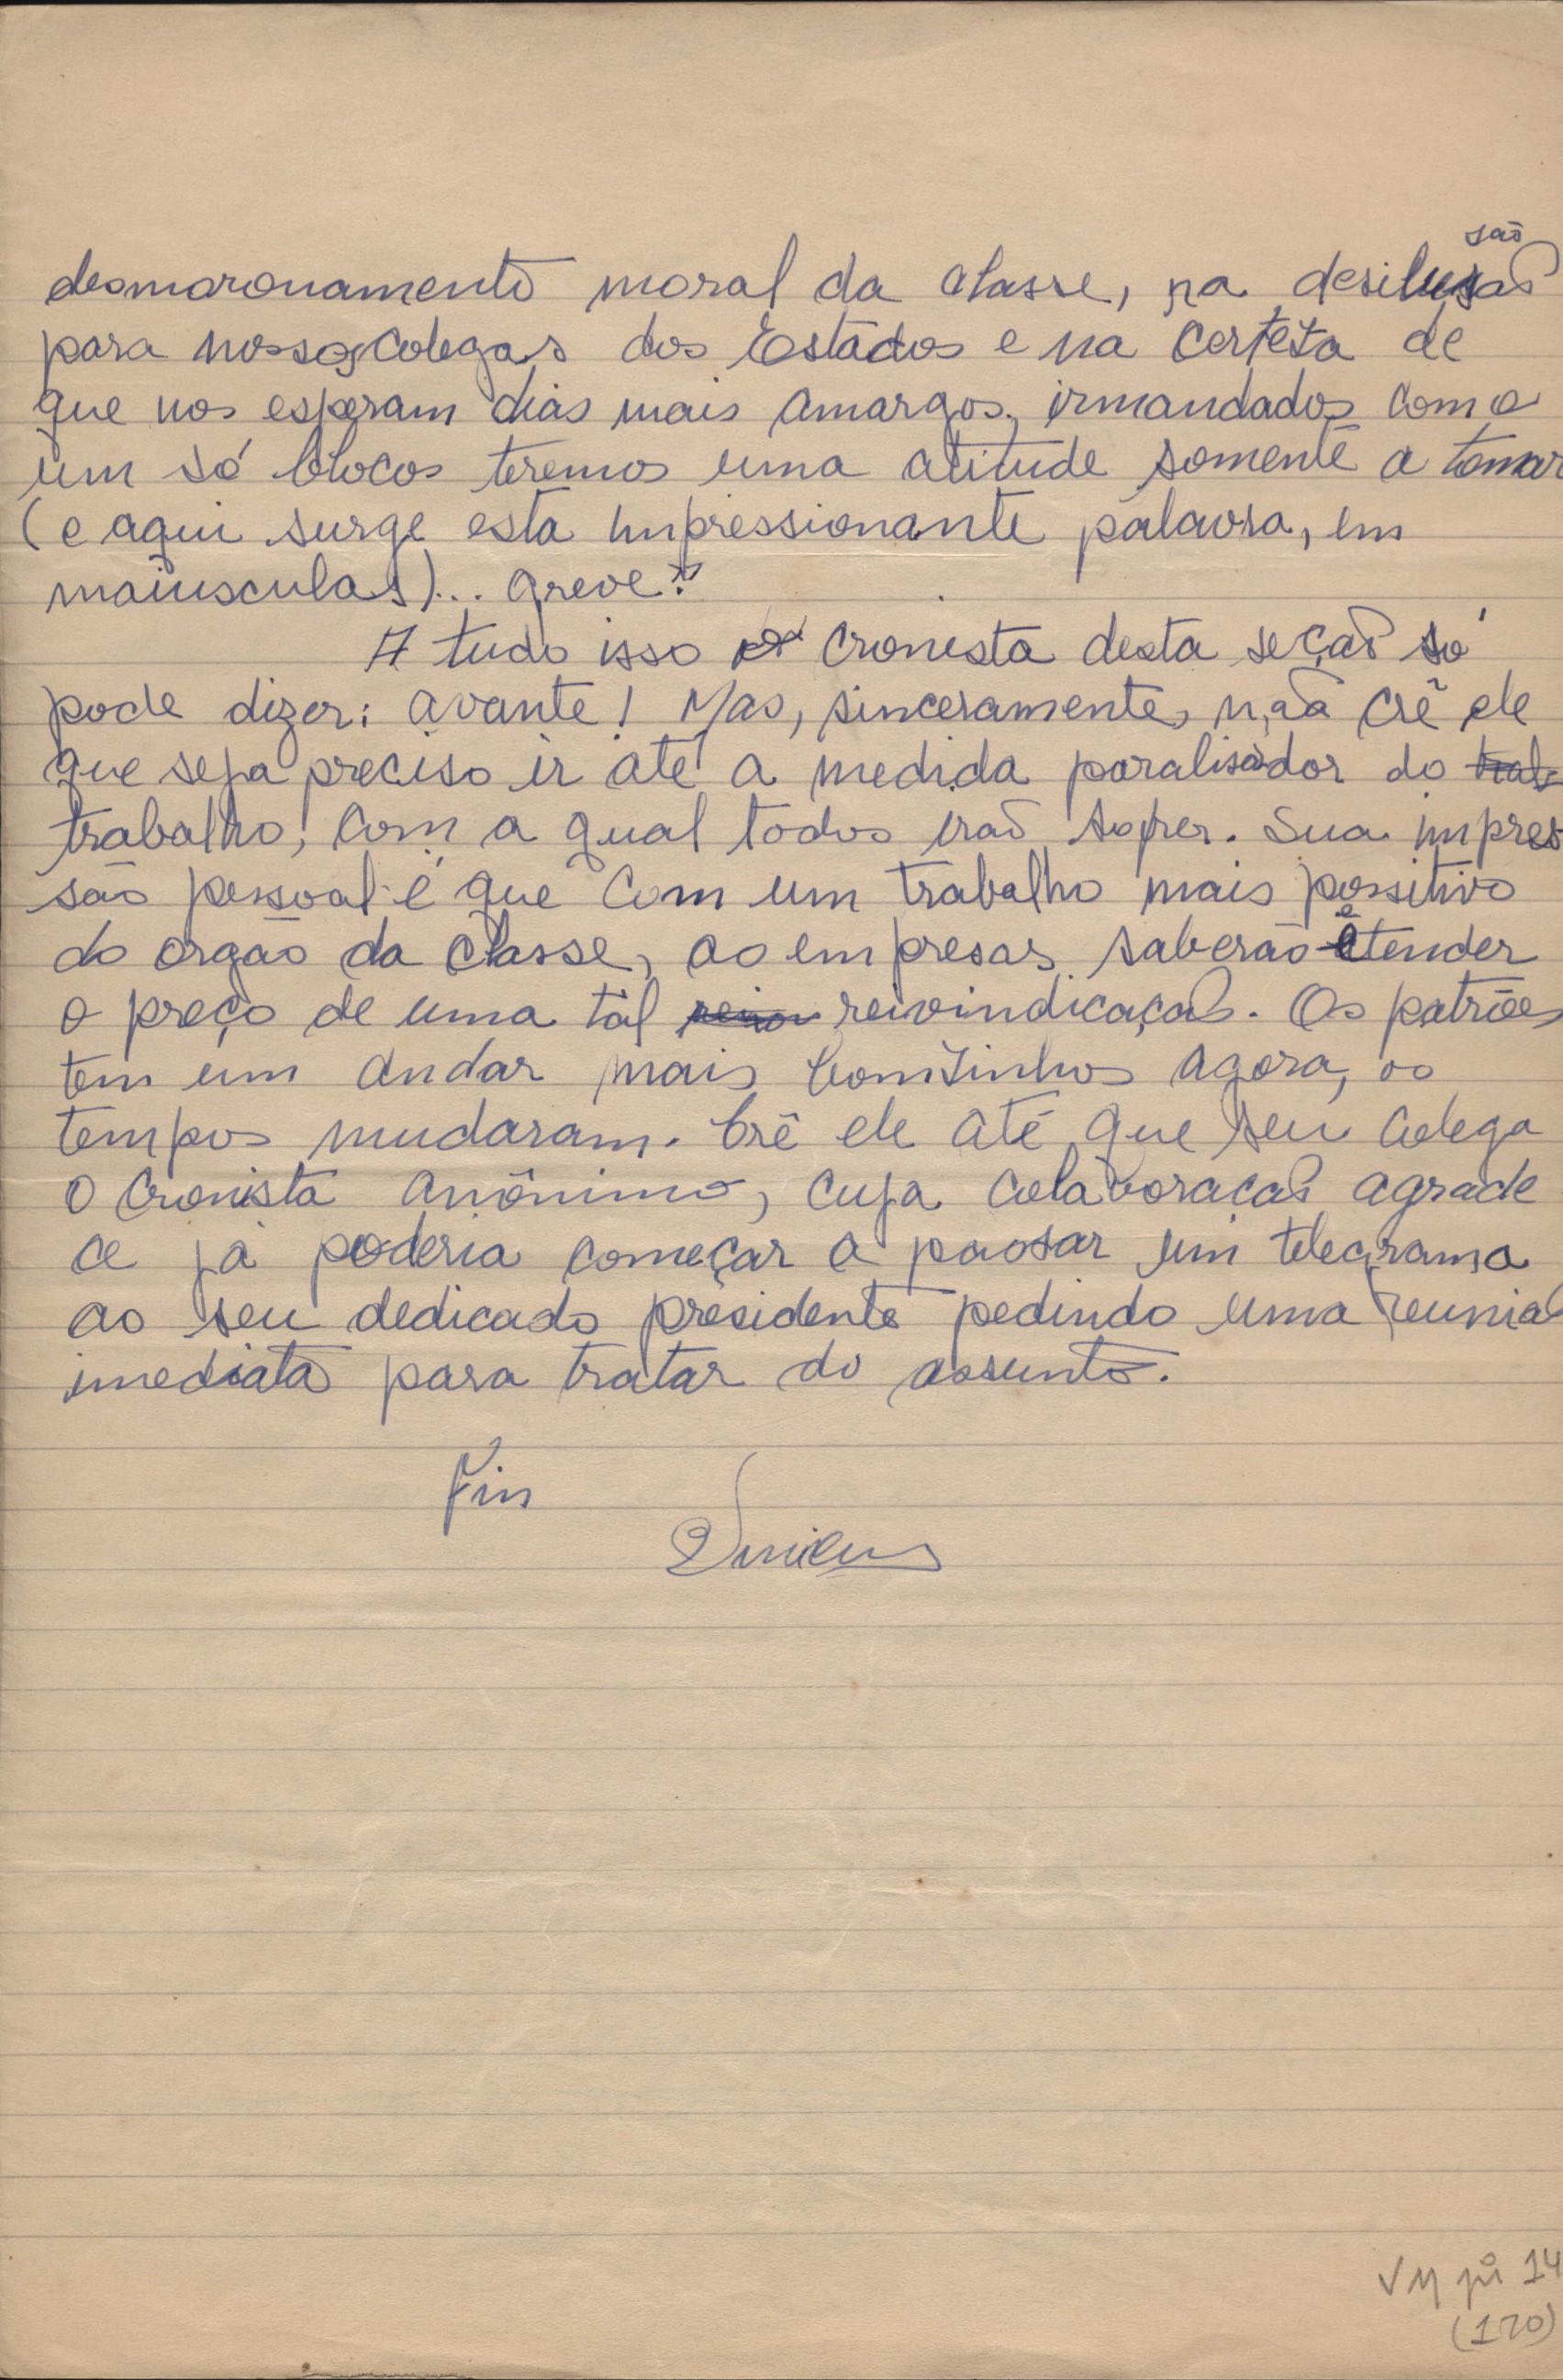 são
desmoronamento moral da classe, na desilusão
para nossos colegas dos Estados e na certeza de
que nos esperam dias mais amargos, irmandados como
um só blocos teremos uma atitude somente a tomar
(e aqui surge esta impressionante palavra, em
maiusculas)... greve."
A tudo isso o cronista desta seção só
pode dizer: avante! Mas, sinceramente, não crê ele
que seja preciso ir até a medida paralisador do trab-
trabalho, com a qual todos irão sofrer. Sua impres
são pessoal é que com um trabalho mais possitivo
do orgão da classe, as empresas saberão etender
o preço de uma tal reivindicação. Os patrões
tem um andar mais bomzinhos agora, os
tempos mudaram. Crê ele até que seu colega
o cronista anônimo, cuja colaboracão agrade
ce já poderia começar a passar um telegrama
ao seu dedicado presidente pedindo uma reunião
imediata para tratar do assunto.
Fin
Vinicius
VM pi 14
(170)